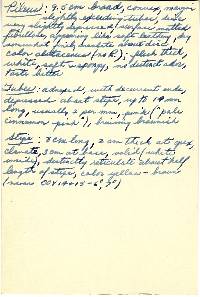 Pileus: 9.5 cm broad, convex, margin
slightly exceeding tubes, dry
very slightly matted
fibrillose, appearing like soft leather, dry
somewhat about disc,
color flesh thick,
white, soft & spongy, no distinct odor,
taste bitter
Tubes: adnexed, with decurrent ends,
depressed about stipe, up to 14 mm
long, usually 2 per mm, pink ("pale
cinnamon pink"), bruising brownish
Stipe: 8 cm long, 2 cm thick at apex,
clavate, 3 cm at base, solid (white
inside), distinctly reticulate about half
length of stipe, color yellow-brown